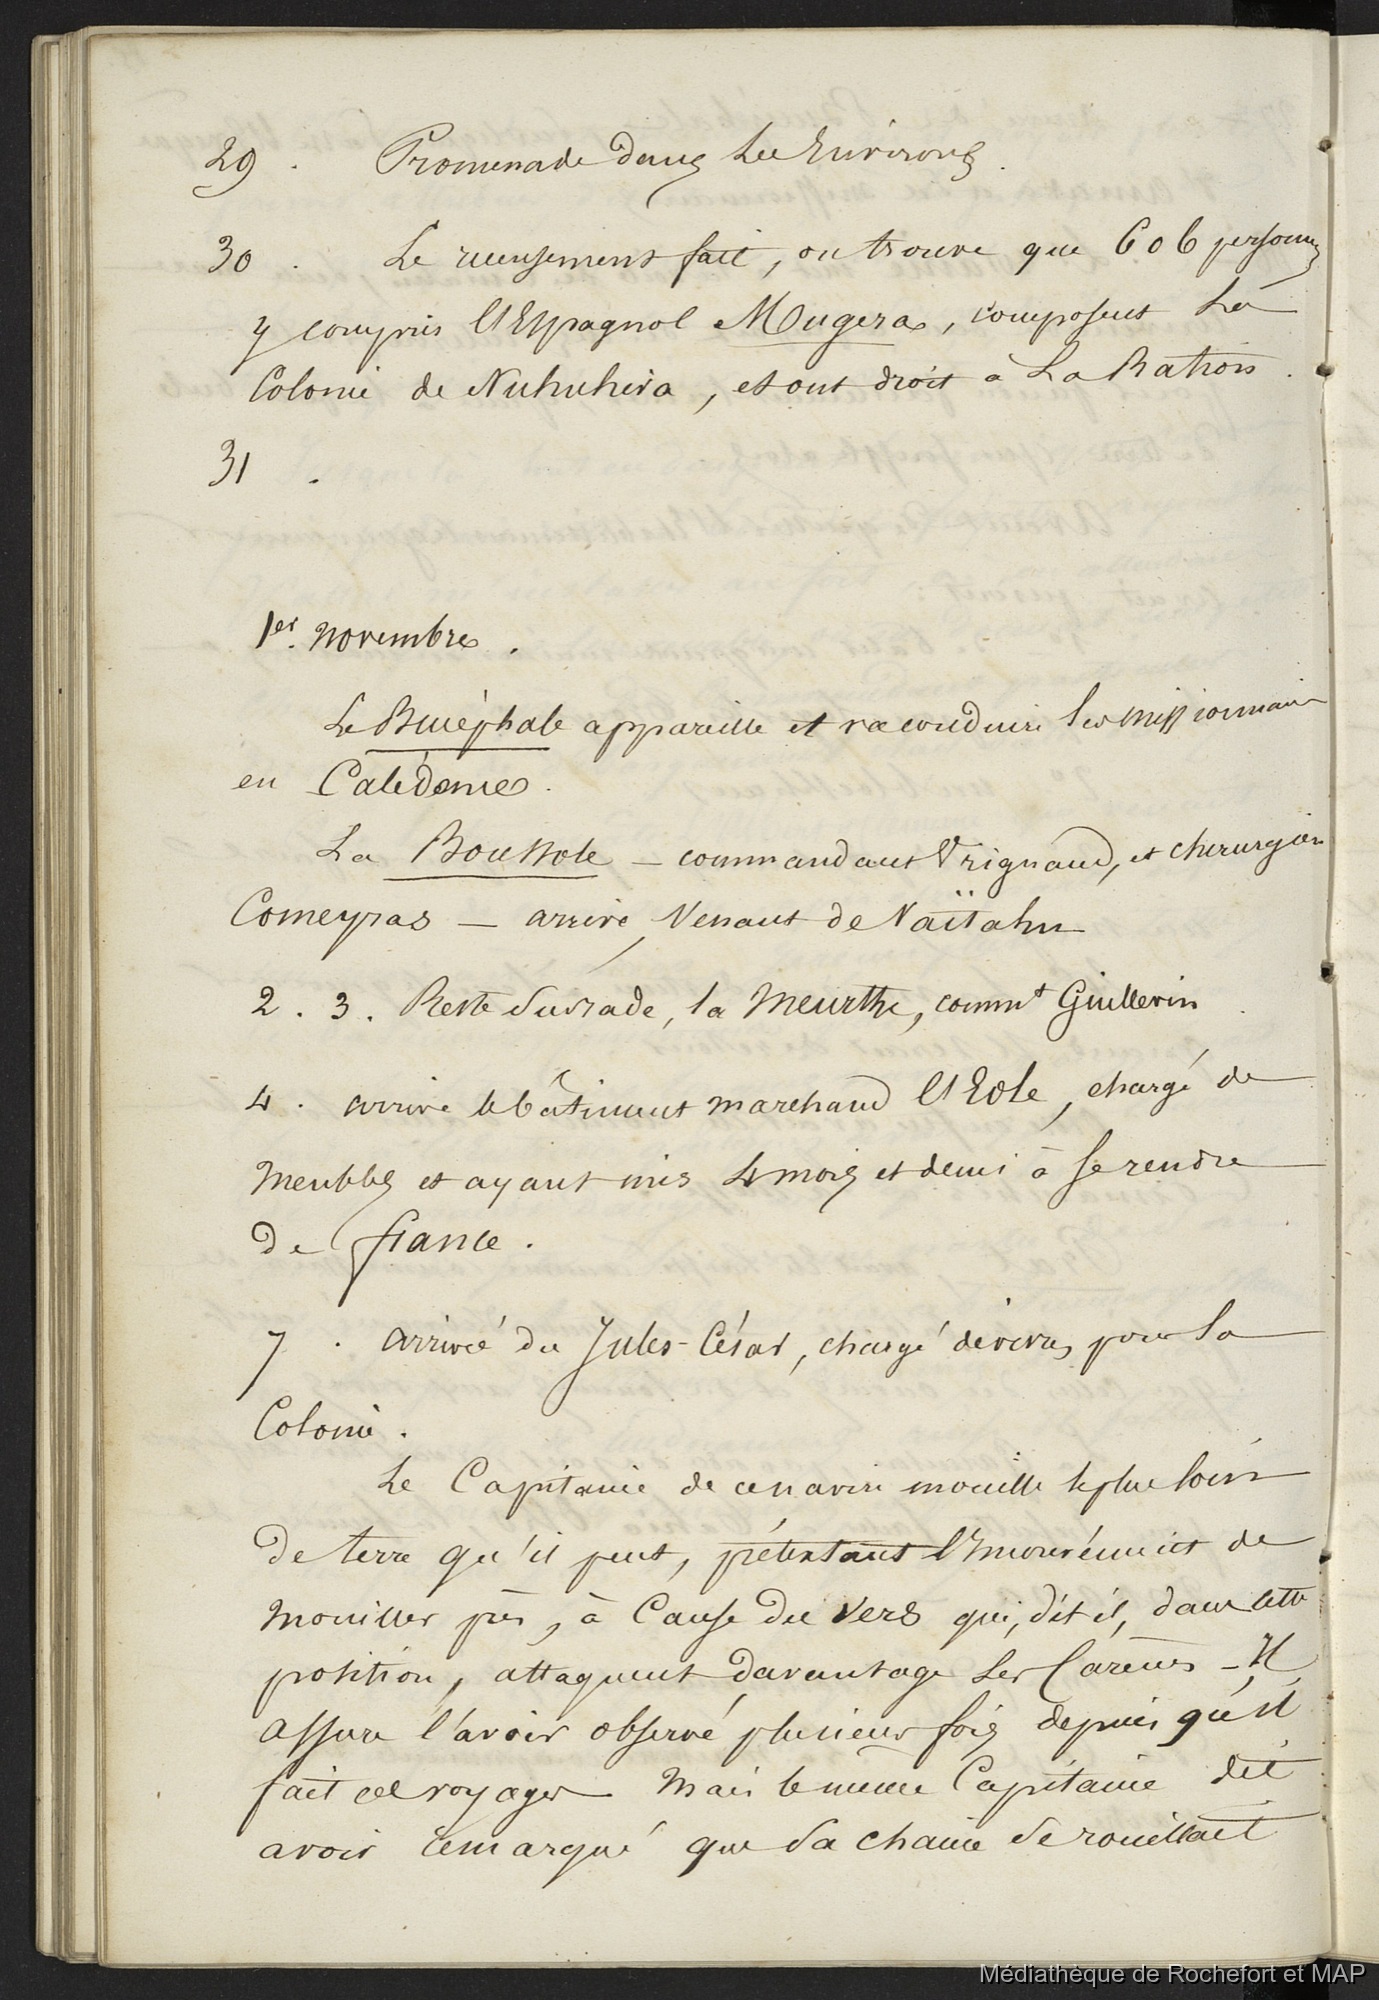 29 . Promenade dans les Environs .
30 . Le recensement fait, on trouve que 606 personnes
y compris l'Espagnol Mugera, composent la
Colonie de Nukuhiva, et ont droit à la Ration .
31 .
1er. Novembre .
Le Bucéphale appareille et va conduire les missionnaires
en Calédonie .
La Boussole — commandant Vrignaud, et chirurgien
Comeyras — arrive, venant de Vaïtahu
2 . 3 . Reste sur rade, la Meurthe, commt Guillevin .
4 . arrive le bâtiment marchand l'Eole, chargé de
Meubles et ayant mis 4 mois et demi à se rendre
de france .
7 . arrivée du Jules-César, chargé de vivres pour la
Colonie .
Le Capitaine de ce navire mouille le plus loin
de terre qu'il peut, prétextant l'inconvénient de
mouiller près, à cause des vers qui, dit il, dans cette
position, attaquent davantage les Carènes — Il
assure l'avoir observé plusieurs fois depuis qu'il
fait ces voyages — Mais le même Capitaine dit
avoir remarqué que sa chaine se rouillait
Médiathèque de Rochefort et MAP